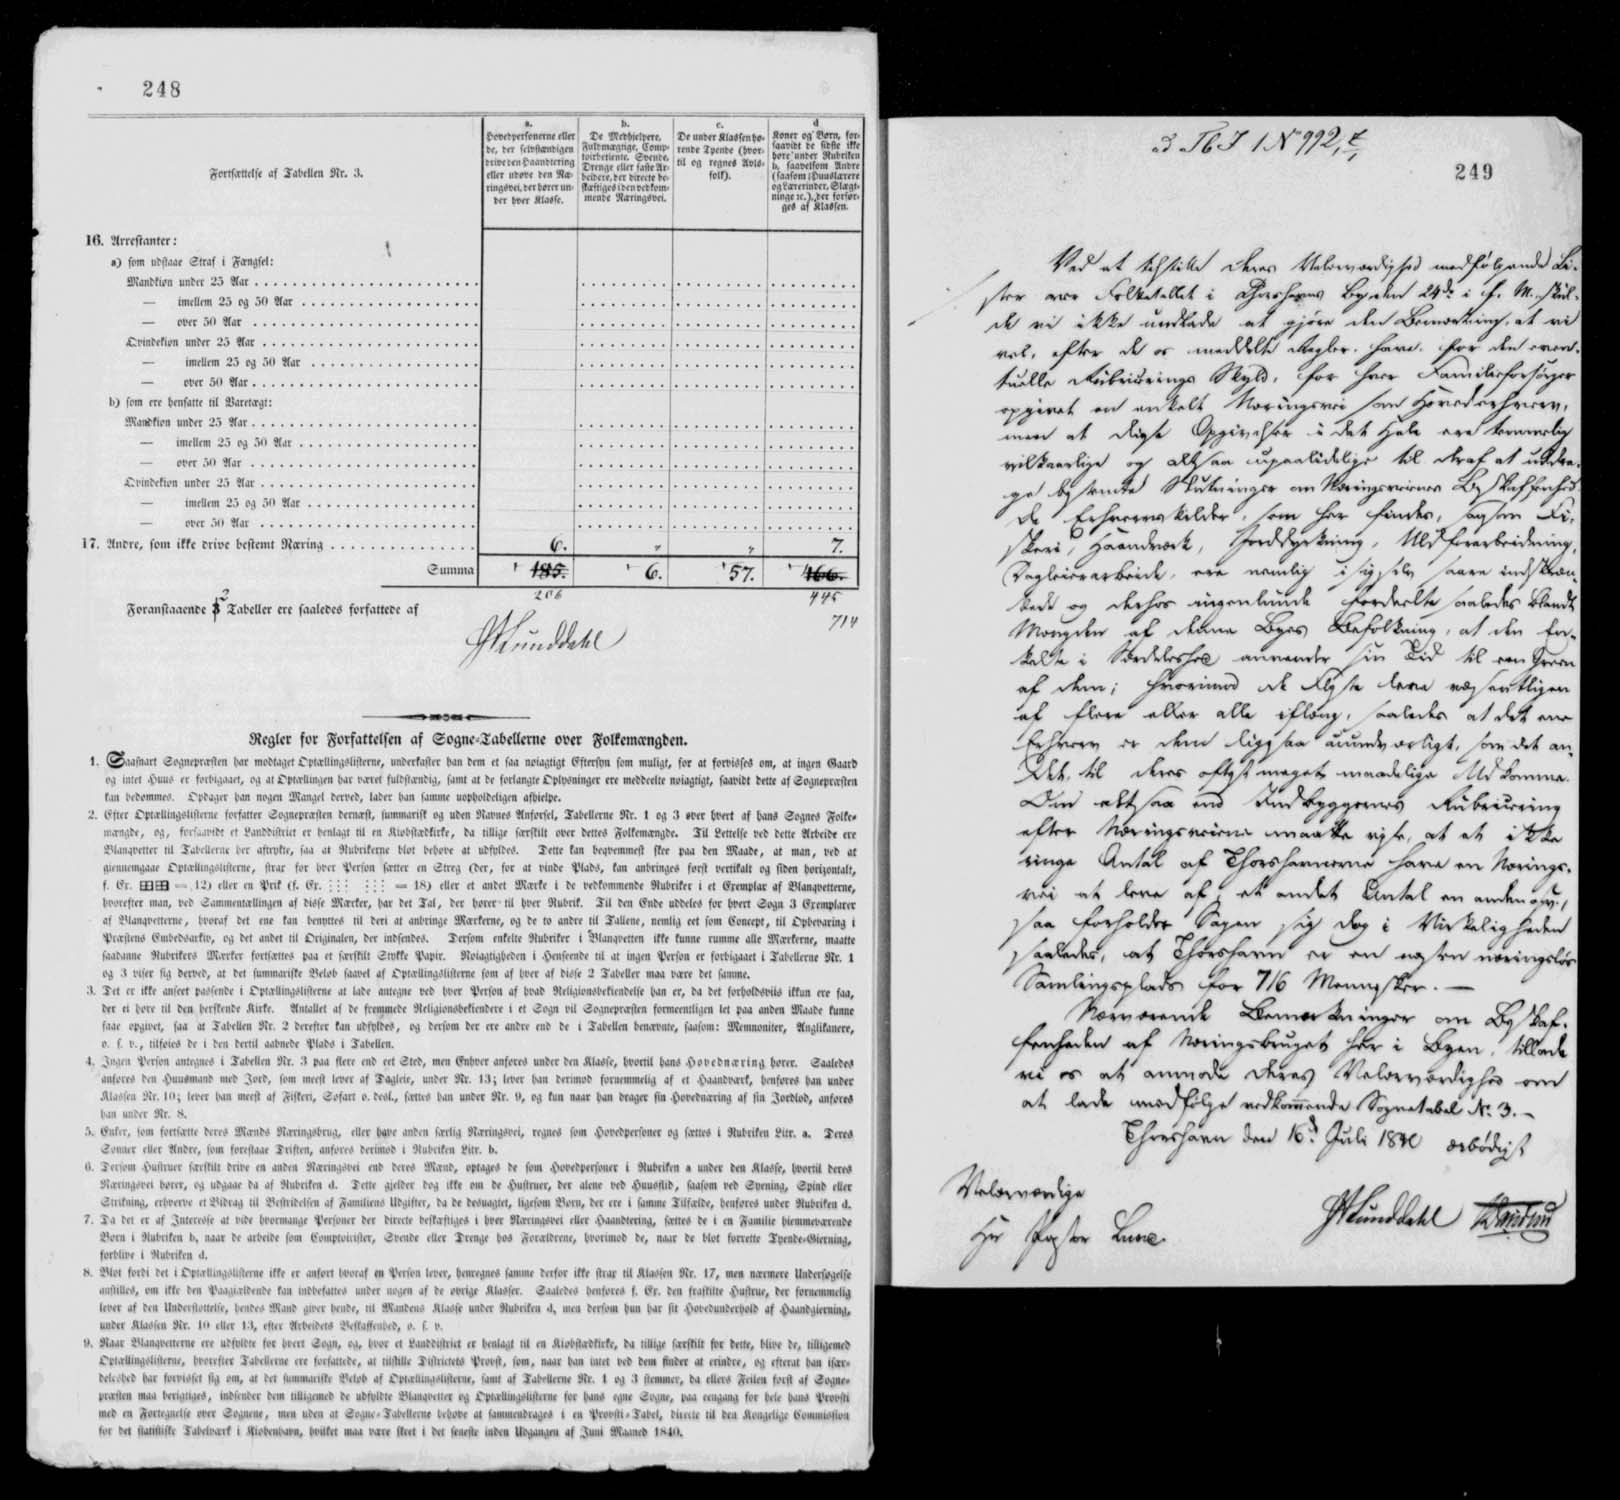 248
Fortsættelse af Tabellen Nr. 3.
a.
Hovedpersonerne eller
de, der selvstændigen
drive den Haandtering
eller udøve den Næ-
ringsvei, der hører un-
der hver Klasse.
b.
De Medhjelpere,
Fuldmægtige, Comp-
toirbetiente, Svende,
Drenge eller faste Ar-
beidere, der directe be-
skæftiges i den vedkom-
mende Næringsvei.
c.
De under Klassen hø-
rende Tyende (hvor-
til og regnes Avls-
folk).
d
Koner og Børn, for-
saavidt de sidste ikke
høre under Rubriken
b, saavelsom Andre
(saasom Huuslærere
og Lærerinder, Slægt-
ninge ic.), der forsør-
ges af Klassen.
16. Arrestanter:
a) som udstaae Straf i Fængsel:
Mandkiøn under 25 Aar
— imellem 25 og 50 Aar
— over 50 Aar
Qvindekiøn under 25 Aar
— imellem 25 og 50 Aar
— over 50 Aar
b) som ere hensatte til Varetægt:
Mandkiøn under 25 Aar
— imellem 25 og 50 Aar
— over 50 Aar
Qvindekiøn under 25 Aar
— imellem 25 og 50 Aar
— over 50 Aar
17. Andre, som ikke drive bestemt Næring 6. „ „ 7.
Summa 185. 6. 57. 466.
206 445
Foranstaaende 3 2 Tabeller ere saaledes forfattede af
714
HLunddahl
Regler for Forfattelsen af Sogne-Tabellerne over Folkemængden.
1. Saasnart Sognepræsten har modtaget Optællingslisterne, underkaster han dem et saa nøiagtigt Eftersyn som muligt, for at forvisses om, at ingen Gaard
og intet Huus er forbigaaet, og at Optællingen har været fuldstændig, samt at de forlangte Oplysninger ere meddeelte nøiagtigt, saavidt dette af Sognepræsten
kan bedømmes. Opdager han nogen Mangel derved, lader han samme uopholdeligen afhielpe.
2. Efter Optællingslisterne forfatter Sognepræsten dernæst, summarisk og uden Navnes Anførsel, Tabellerne Nr. 1 og 3 over hvert af hans Sognes Folke-
mængde, og, forsaavidt et Landdistrict er henlagt til en Kiøbstædkirke, da tillige særskilt over dettes Folkemængde. Til Lettelse ved dette Arbeide ere
Blanqvetter til Tabellerne her aftrykte, saa at Rubrikerne blot behøve at udfyldes. Dette kan beqvemmest skee paa den Maade, at man, ved at
giennemgaae Optællingslisterne, strax for hver Person sætter en Streg (der, for at vinde Plads, kan anbringes først vertikalt og siden horizontalt,
f. Ex. ⊞⊞ = 12) eller en Prik (f. Ex. ⋮⋮⋮ ⋮⋮⋮ = 18) eller et andet Mærke i de vedkommende Rubriker i et Exemplar af Blanqvetterne,
hvorefter man, ved Sammentællingen af disse Mærker, har det Tal, der hører til hver Rubrik. Til den Ende uddeles for hvert Sogn 3 Exemplarer
af Blanqvetterne, hvoraf det ene kan benyttes til deri at anbringe Mærkerne, og de to andre til Tallene, nemlig eet som Concept, til Opbevaring i
Præstens Embedsarkiv, og det andet til Originalen, der indsendes. Dersom enkelte Rubriker i Blanqvetten ikke kunne rumme alle Mærkerne, maatte
saadanne Rubrikers Mærker fortsættes paa et særskilt Stykke Papir. Nøiagtigheden i Henseende til at ingen Person er forbigaaet i Tabellerne Nr. 1
og 3 viser sig derved, at det summariske Beløb saavel af Optællingslisterne som af hver af disse 2 Tabeller maa være det samme.
3. Det er ikke anseet passende i Optællingslisterne at lade antegne ved hver Person af hvad Religionsbekiendelse han er, da det forholdsviis ikkun ere faa,
der ei høre til den herskende Kirke. Antallet af de fremmede Religionsbekiendere i et Sogn vil Sognepræsten formeentligen let paa anden Maade kunne
faae opgivet, saa at Tabellen Nr. 2 derefter kan udfyldes, og dersom der ere andre end de i Tabellen benævnte, saasom: Memnoniter, Anglikanere,
o. s. v., tilføies de i den dertil aabnede Plads i Tabellen.
4. Ingen Person antegnes i Tabellen Nr. 3 paa flere end eet Sted, men Enhver anføres under den Klasse, hvortil hans Hovednæring hører. Saaledes
anføres den Huusmand med Jord, som meest lever af Dagleie, under Nr. 13; lever han derimod fornemmelig af et Haandværk, henføres han under
Klassen Nr. 10; lever han meest af Fiskeri, Søfart o. desl., sættes han under Nr. 9, og kun naar han drager sin Hovednæring af sin Jordlod, anføres
han under Nr. 8.
5. Enker, som fortsætte deres Mænds Næringsbrug, eller have anden særlig Næringsvei, regnes som Hovedpersoner og sættes i Rubriken Litr. a. Deres
Sønner eller Andre, som forestaae Driften, anføres derimod i Rubriken Litr. b.
6. Dersom Hustruer særskilt drive en anden Næringsvei end deres Mænd, optages de som Hovedpersoner i Rubriken a under den Klasse, hvortil deres
Næringsvei hører, og udgaae da af Rubriken d. Dette gjelder dog ikke om de Hustruer, der alene ved Huusflid, saasom ved Syening, Spind eller
Strikning, erhverve et Bidrag til Bestridelsen af Familiens Udgifter, da de desuagtet, ligesom Børn, der ere i samme Tilfælde, henføres under Rubriken d.
7. Da det er af Interesse at vide hvormange Personer der directe beskæftiges i hver Næringsvei eller Haandtering, sættes de i en Familie hiemmeværende
Børn i Rubriken b, naar de arbeide som Comptoirister, Svende eller Drenge hos Forældrene, hvorimod de, naar de blot forrette Tyende-Gierning,
forblive i Rubriken d.
8. Blot fordi det i Optællingslisterne ikke er anført hvoraf en Person lever, henregnes samme derfor ikke strax til Klassen Nr. 17, men nærmere Undersøgelse
anstilles, om ikke den Paagiældende kan indbefattes under nogen af de øvrige Klasser. Saaledes henføres f. Ex. den fraskilte Hustrue, der fornemmelig
lever af den Understøttelse, hendes Mand giver hende, til Mandens Klasse under Rubriken d, men dersom hun har sit Hovedunderhold af Haandgierning,
under Klassen Nr. 10 eller 13, efter Arbeidets Beskaffenhed, o. s. v.
9. Naar Blanqvetterne ere udfyldte for hvert Sogn, og, hvor et Landdistrict er henlagt til en Kiøbstædkirke, da tillige særskilt for dette, blive de, tilligemed
Optællingslisterne, hvorefter Tabellerne ere forfattede, at tilstille Districtets Provst, som, naar han intet ved dem finder at erindre, og efterat han især-
deleshed har forvisset sig om, at det summariske Beløb af Optællingslisterne, samt af Tabellerne Nr. 1 og 3 stemmer, da ellers Feilen først af Sogne-
præsten maa berigtiges, indsender dem tilligemed de udfyldte Blanqvetter og Optællingslisterne for hans egne Sogne, paa eengang for hele hans Provsti
med en Fortegnelse over Sognene, men uden at Sogne-Tabellerne behøve at sammendrages i en Provsti-Tabel, directe til den Kongelige Commission
for det statistiske Tabelværk i Kiøbenhavn, hvilket maa være skeet i det seneste inden Udgangen af Juni Maaned 1840.
249
Ved at tilstille Deres Velærværdighed medfølgende Li-
ster over Folketallet i Thorshavns By den 24de i f. M. skul-
de vi ikke undlade at gjøre den Bemærkning, at vi
vel, efter de os meddelte Regler, have for den even-
tuelle Rubricerings Skyld, for hver Familieforsørger
opgivet en enkelt Næringsvei som Hovederhverv,
men at disse Opgivelser i det Hele ere temmelig
vilkaarlige og altsaa upaalidelige til deraf at uddra-
ge bestemte Slutninger om Næringsveienes Beskaffenhed.
De Erhvervskilder, som her findes, saasom Fi-
skeri, Haandværk, Jorddyrkning, Uldforarbeidning,
Dagleierarbeide, ere nemlig i sig selv saare indskræn-
kede og derhos ingenlunde fordeelte saaledes blandt
Mængden af denne Byes Befolkning, at den En-
kelte i Særdeleshed anvender sin Tid til een Green
af dem; hvorimod de Fleste leve væsentligen
af flere eller alle iflæng, saaledes at det ene
Erhverv er dem ligesaa uundværligt, som det an-
det, til deres oftest meget maadelige Udkomme.
Om altsaa end Indbyggernes Rubricering
efter Næringsveiene maatte vise, at et ikke
ringe Antal af Thorshavnerne have en Nærings-
vei at leve af, et andet Antal en anden o.s.v.,
saa forholder Sagen sig dog i Virkeligheden
saaledes, at Thorshavn er en næsten næringsløs
Samlingsplads for 716 Mennesker. —
Nærværende Bemærkninger om Beskaf-
fenheden af Næringsbruget her i Byen, tillade
vi os at anmode Deres Velærværdighed om
at lade medfølge vedkommende Sognetabel No. 3. —
Thorshavn den 16de Juli 1840 ærbødigst
HLunddahl
Velærværdige
Hr Pastor